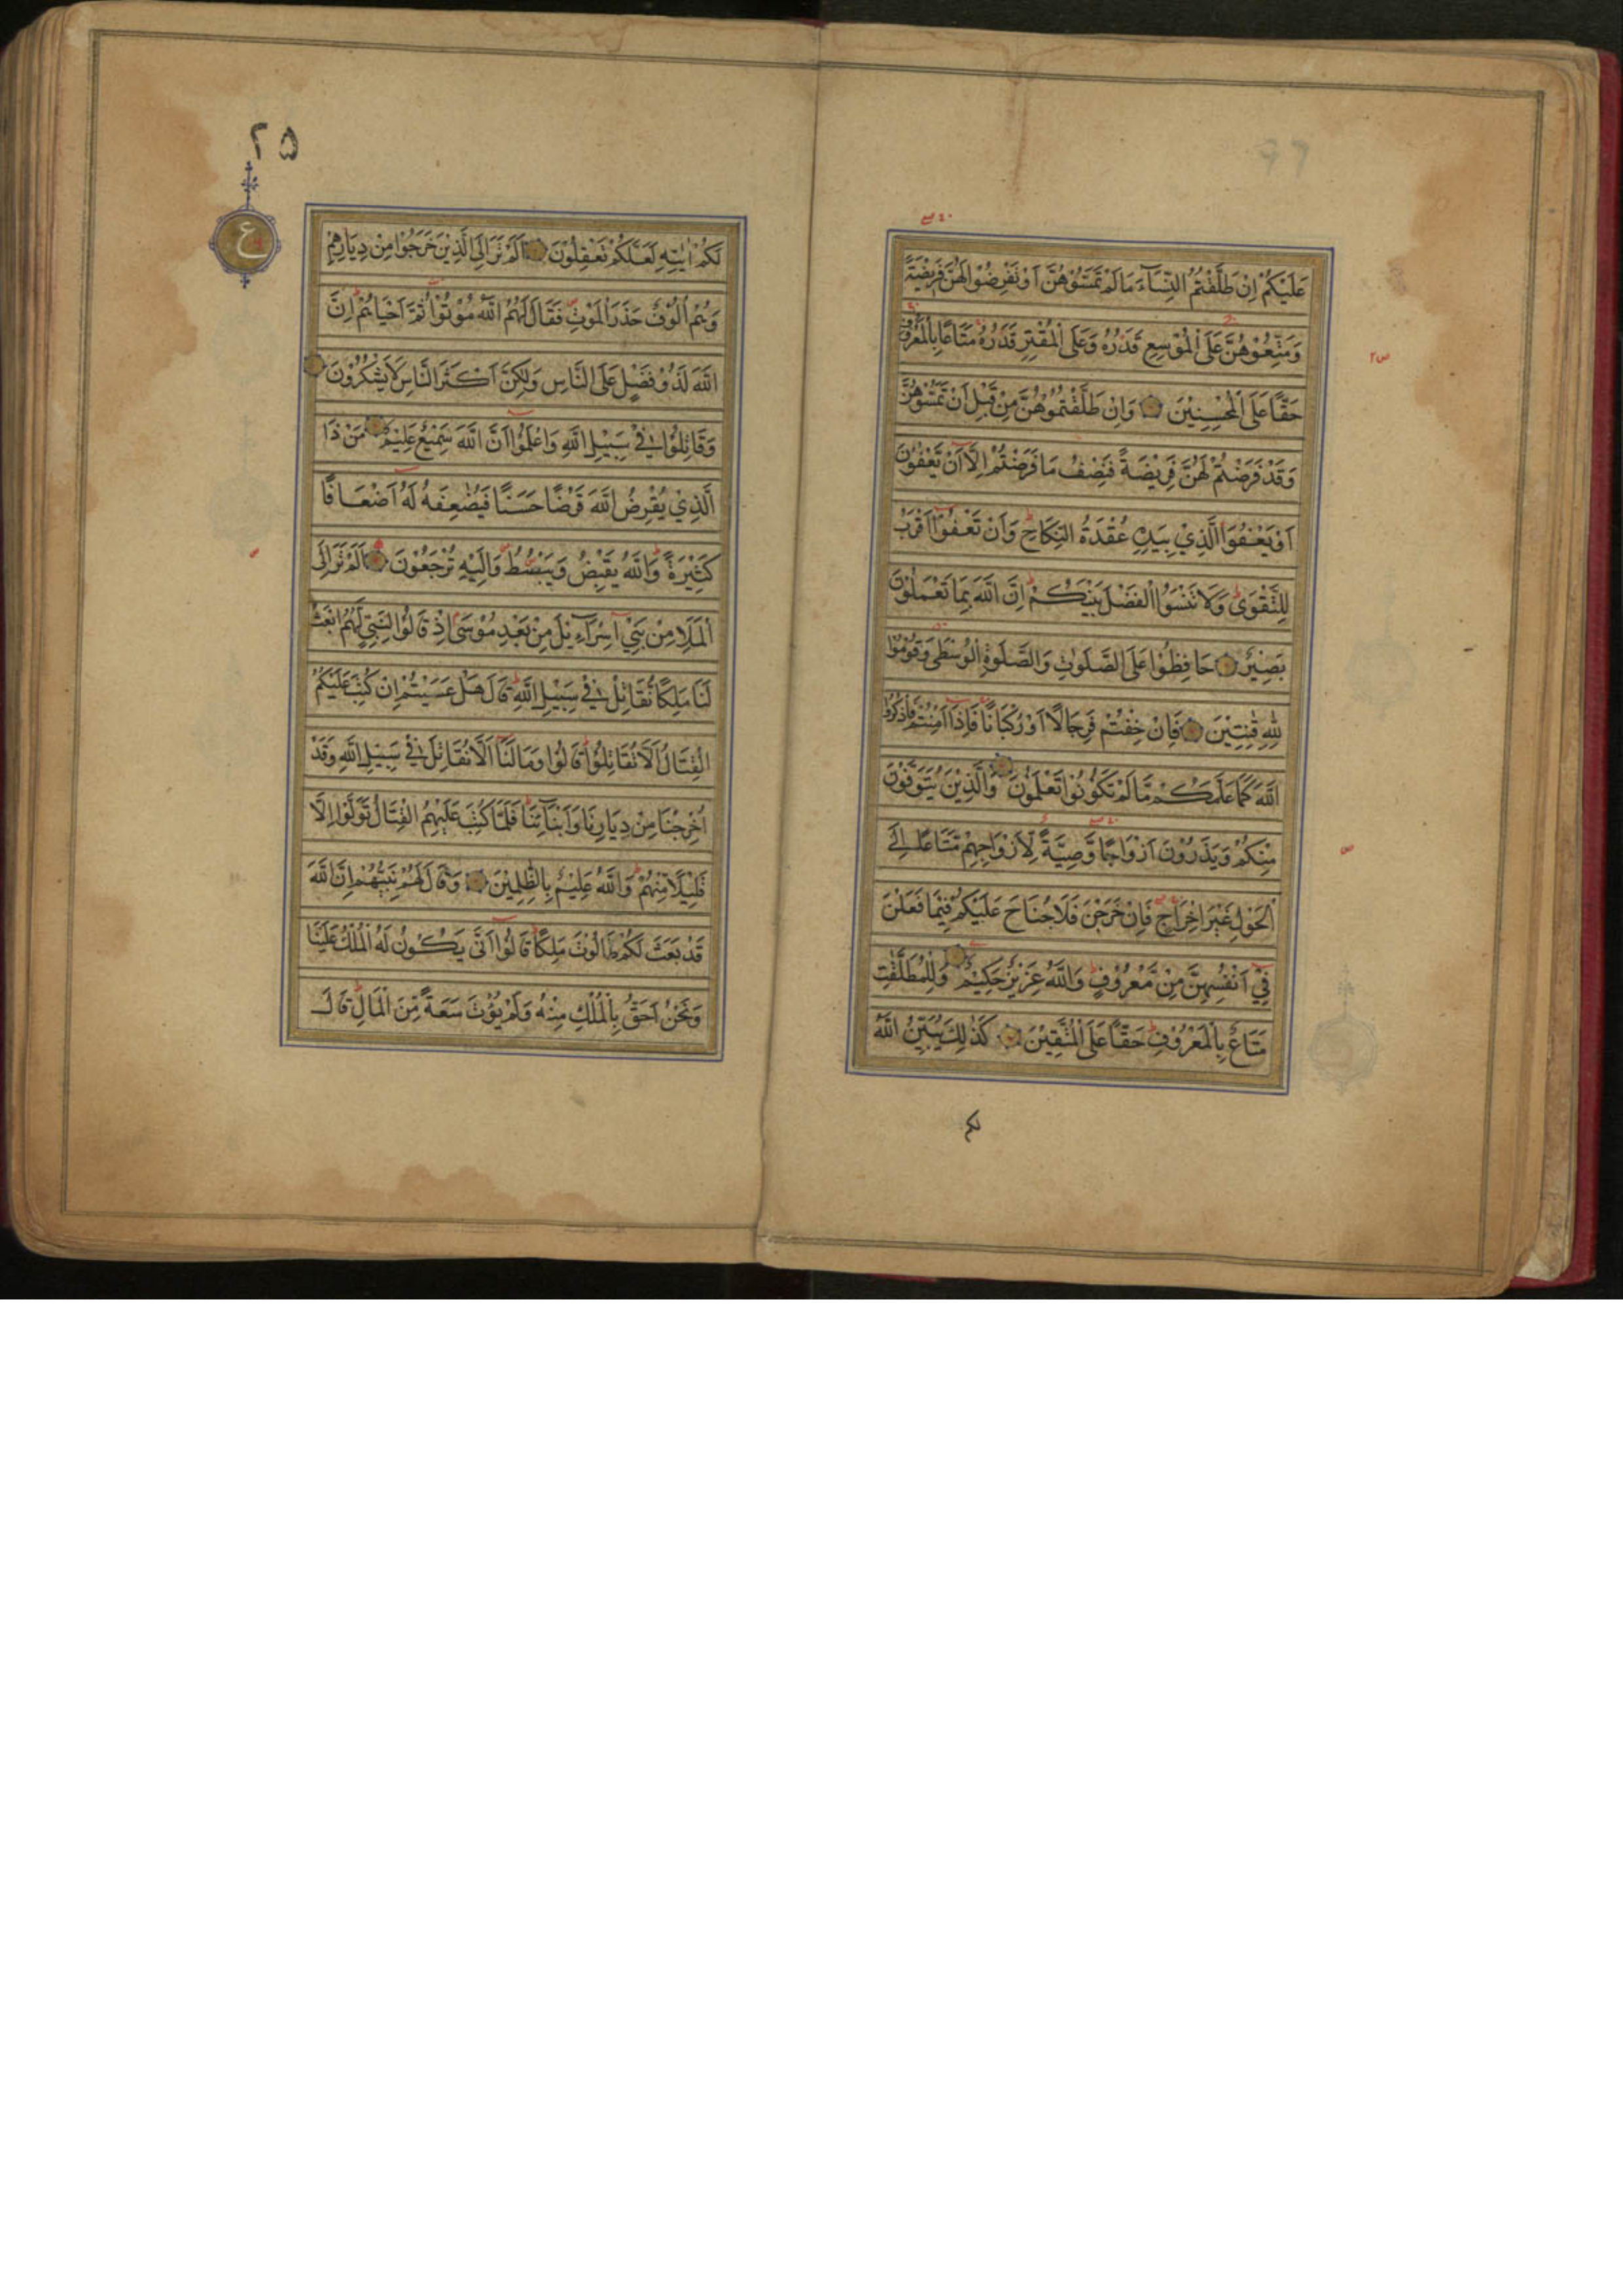 عَلَيْكُمْ اِنْ طَلَّقْتُمُ النِّسَآءَ مَا لَمْ تَمَسُّوْهُنَّ اَوْ تَفْرِضُوْا لَهُنَّ فَرِيْضَةً
وَمَتِّعُوْهُنَّ عَلَى الْمُوْسِعِ قَدَرُهُ وَعَلَى الْمُقْتِرِ قَدَرُهُ مَتَاعًا بِالْمَعْرُوْفِ
حَقًّا عَلَى الْمُحْسِنِيْنَ وَاِنْ طَلَّقْتُمُوْهُنَّ مِنْ قَبْلِ اَنْ تَمَسُّوْهُنَّ
وَقَدْ فَرَضْتُمْ لَهُنَّ فَرِيْضَةً فَنِصْفُ مَا فَرَضْتُمْ اِلَّا اَنْ يَعْفُوْنَ
اَوْ يَعْفُوَا الَّذِيْ بِيَدِهِ عُقْدَةُ النِّكَاحِ وَاَنْ تَعْفُوْا اَقْرَبُ
لِلتَّقْوٰى وَلَا تَنْسَوُا الْفَضْلَ بَيْنَكُمْ اِنَّ اللّٰهَ بِمَا تَعْمَلُوْنَ
بَصِيْرٌ حَافِظُوْا عَلَى الصَّلَوٰتِ وَالصَّلٰوةِ الْوُسْطٰى وَقُوْمُوْا
لِلّٰهِ قٰنِتِيْنَ فَاِنْ خِفْتُمْ فَرِجَالًا اَوْ رُكْبَانًا فَاِذَا اَمِنْتُمْ فَاذْكُرُوا
اللّٰهَ كَمَا عَلَّمَكُمْ مَّا لَمْ تَكُوْنُوْا تَعْلَمُوْنَ وَالَّذِيْنَ يُتَوَفَّوْنَ
مِنْكُمْ وَيَذَرُوْنَ اَزْوَاجًا وَّصِيَّةً لِّاَزْوَاجِهِمْ مَّتَاعًا اِلَى
الْحَوْلِ غَيْرَ اِخْرَاجٍ فَاِنْ خَرَجْنَ فَلَا جُنَاحَ عَلَيْكُمْ فِيْمَا فَعَلْنَ
فِيْ اَنْفُسِهِنَّ مِنْ مَّعْرُوْفٍ وَاللّٰهُ عَزِيْزٌ حَكِيْمٌ وَلِلْمُطَلَّقٰتِ
مَتَاعٌ بِالْمَعْرُوْفِ حَقًّا عَلَى الْمُتَّقِيْنَ كَذٰلِكَ يُبَيِّنُ اللّٰهُ
۲۵
ع
لَكُمْ اٰيٰتِهِ لَعَلَّكُمْ تَعْقِلُوْنَ اَلَمْ تَرَ اِلَى الَّذِيْنَ خَرَجُوْا مِنْ دِيَارِهِمْ
وَهُمْ اُلُوْفٌ حَذَرَ الْمَوْتِ فَقَالَ لَهُمُ اللّٰهُ مُوْتُوْا ثُمَّ اَحْيَاهُمْ اِنَّ
اللّٰهَ لَذُوْ فَضْلٍ عَلَى النَّاسِ وَلٰكِنَّ اَكْثَرَ النَّاسِ لَا يَشْكُرُوْنَ
وَقَاتِلُوْا فِيْ سَبِيْلِ اللّٰهِ وَاعْلَمُوْا اَنَّ اللّٰهَ سَمِيْعٌ عَلِيْمٌ مَنْ ذَا
الَّذِيْ يُقْرِضُ اللّٰهَ قَرْضًا حَسَنًا فَيُضٰعِفَهُ لَهُ اَضْعَافًا
كَثِيْرَةً وَاللّٰهُ يَقْبِضُ وَيَبْصُطُ وَاِلَيْهِ تُرْجَعُوْنَ اَلَمْ تَرَ اِلَى
الْمَلَاِ مِنْ بَنِيْ اِسْرَآءِيْلَ مِنْ بَعْدِ مُوْسٰى اِذْ قَالُوْا لِنَبِيٍّ لَهُمُ ابْعَثْ
لَنَا مَلِكًا نُقَاتِلْ فِيْ سَبِيْلِ اللّٰهِ قَالَ هَلْ عَسَيْتُمْ اِنْ كُتِبَ عَلَيْكُمُ
الْقِتَالُ اَلَّا تُقَاتِلُوْا قَالُوْا وَمَا لَنَا اَلَّا نُقَاتِلَ فِيْ سَبِيْلِ اللّٰهِ وَقَدْ
اُخْرِجْنَا مِنْ دِيَارِنَا وَاَبْنَآئِنَا فَلَمَّا كُتِبَ عَلَيْهِمُ الْقِتَالُ تَوَلَّوْا اِلَّا
قَلِيْلًا مِّنْهُمْ وَاللّٰهُ عَلِيْمٌ بِالظّٰلِمِيْنَ وَقَالَ لَهُمْ نَبِيُّهُمْ اِنَّ اللّٰهَ
قَدْ بَعَثَ لَكُمْ طَالُوْتَ مَلِكًا قَالُوْا اَنّٰى يَكُوْنُ لَهُ الْمُلْكُ عَلَيْنَا
وَنَحْنُ اَحَقُّ بِالْمُلْكِ مِنْهُ وَلَمْ يُؤْتَ سَعَةً مِّنَ الْمَالِ قَالَ